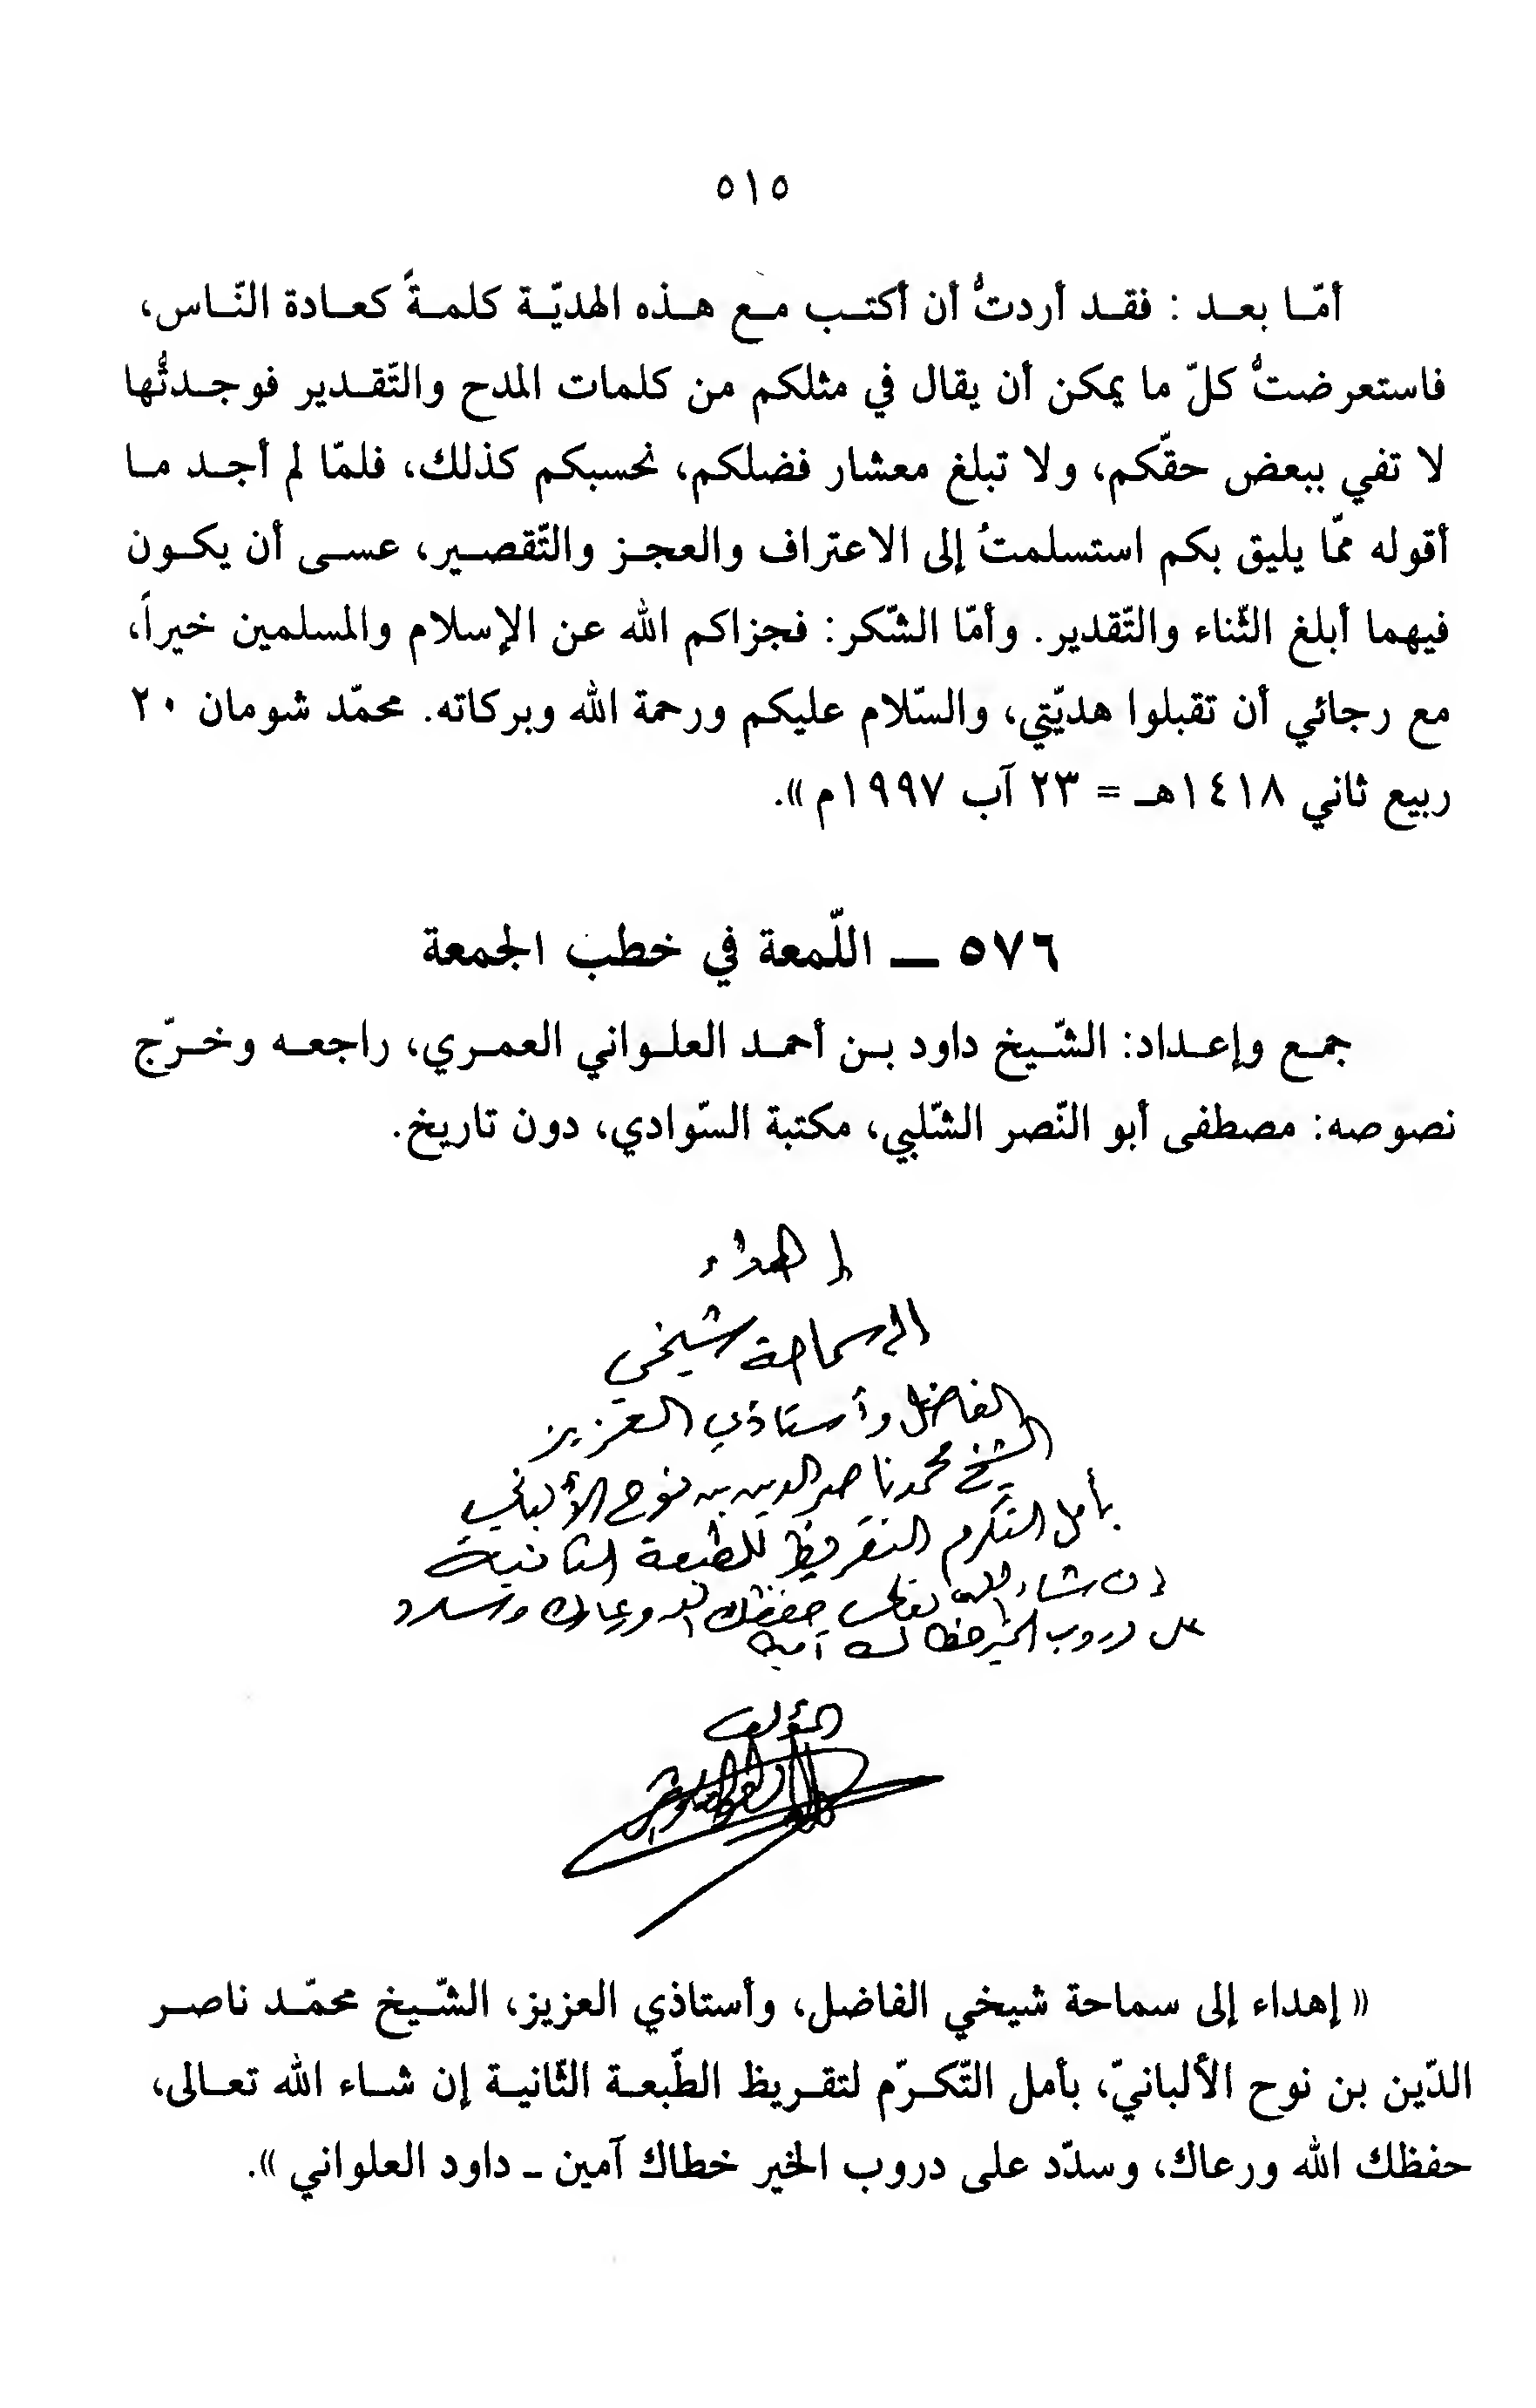 ٥١٥
أمّا بعد : فقد أردتُ أن أكتب مع هذه الهديّة كلمةً كعادة النّاس،
فاستعرضتُ كلّ ما يمكن أن يقال في مثلكم من كلمات المدح والتّقدير فوجدتُها
لا تفي ببعض حقّكم، ولا تبلغ معشار فضلكم، نحسبكم كذلك، فلمّا لم أجد ما
أقوله ممّا يليق بكم استسلمتُ إلى الاعتراف والعجز والتّقصير، عسى أن يكون
فيهما أبلغ الثّناء والتّقدير. وأمّا الشّكر: فجزاكم الله عن الإسلام والمسلمين خيراً،
مع رجائي أن تقبلوا هديّتي، والسّلام عليكم ورحمة الله وبركاته. محمّد شومان ٢٠
ربيع ثاني ١٤١٨هـ = ٢٣ آب ١٩٩٧م ».
٥٧٦ ــ اللّمعة في خطب الجمعة
جمع وإعداد: الشّيخ داود بن أحمد العلواني العمري، راجعه وخرّج
نصوصه: مصطفى أبو النّصر الشّلبي، مكتبة السّوادي، دون تاريخ.
إهداء
إلى سماحة شيخي
الفاضل وأستاذي العزيز
الشيخ محمد ناصر الدين بن نوح الألباني
بأمل التكرم التقريظ للطبعة الثانية
إن شاء الله تعالى حفظك الله ورعاك وسدد
على دروب الخير خطاك آمين
المؤلف
« إهداء إلى سماحة شيخي الفاضل، وأستاذي العزيز، الشّيخ محمّد ناصر
الدّين بن نوح الألبانيّ، بأمل التّكرّم لتقريظ الطّبعة الثّانية إن شاء الله تعالى،
حفظك الله ورعاك، وسدّد على دروب الخير خطاك آمين ـ داود العلواني ».